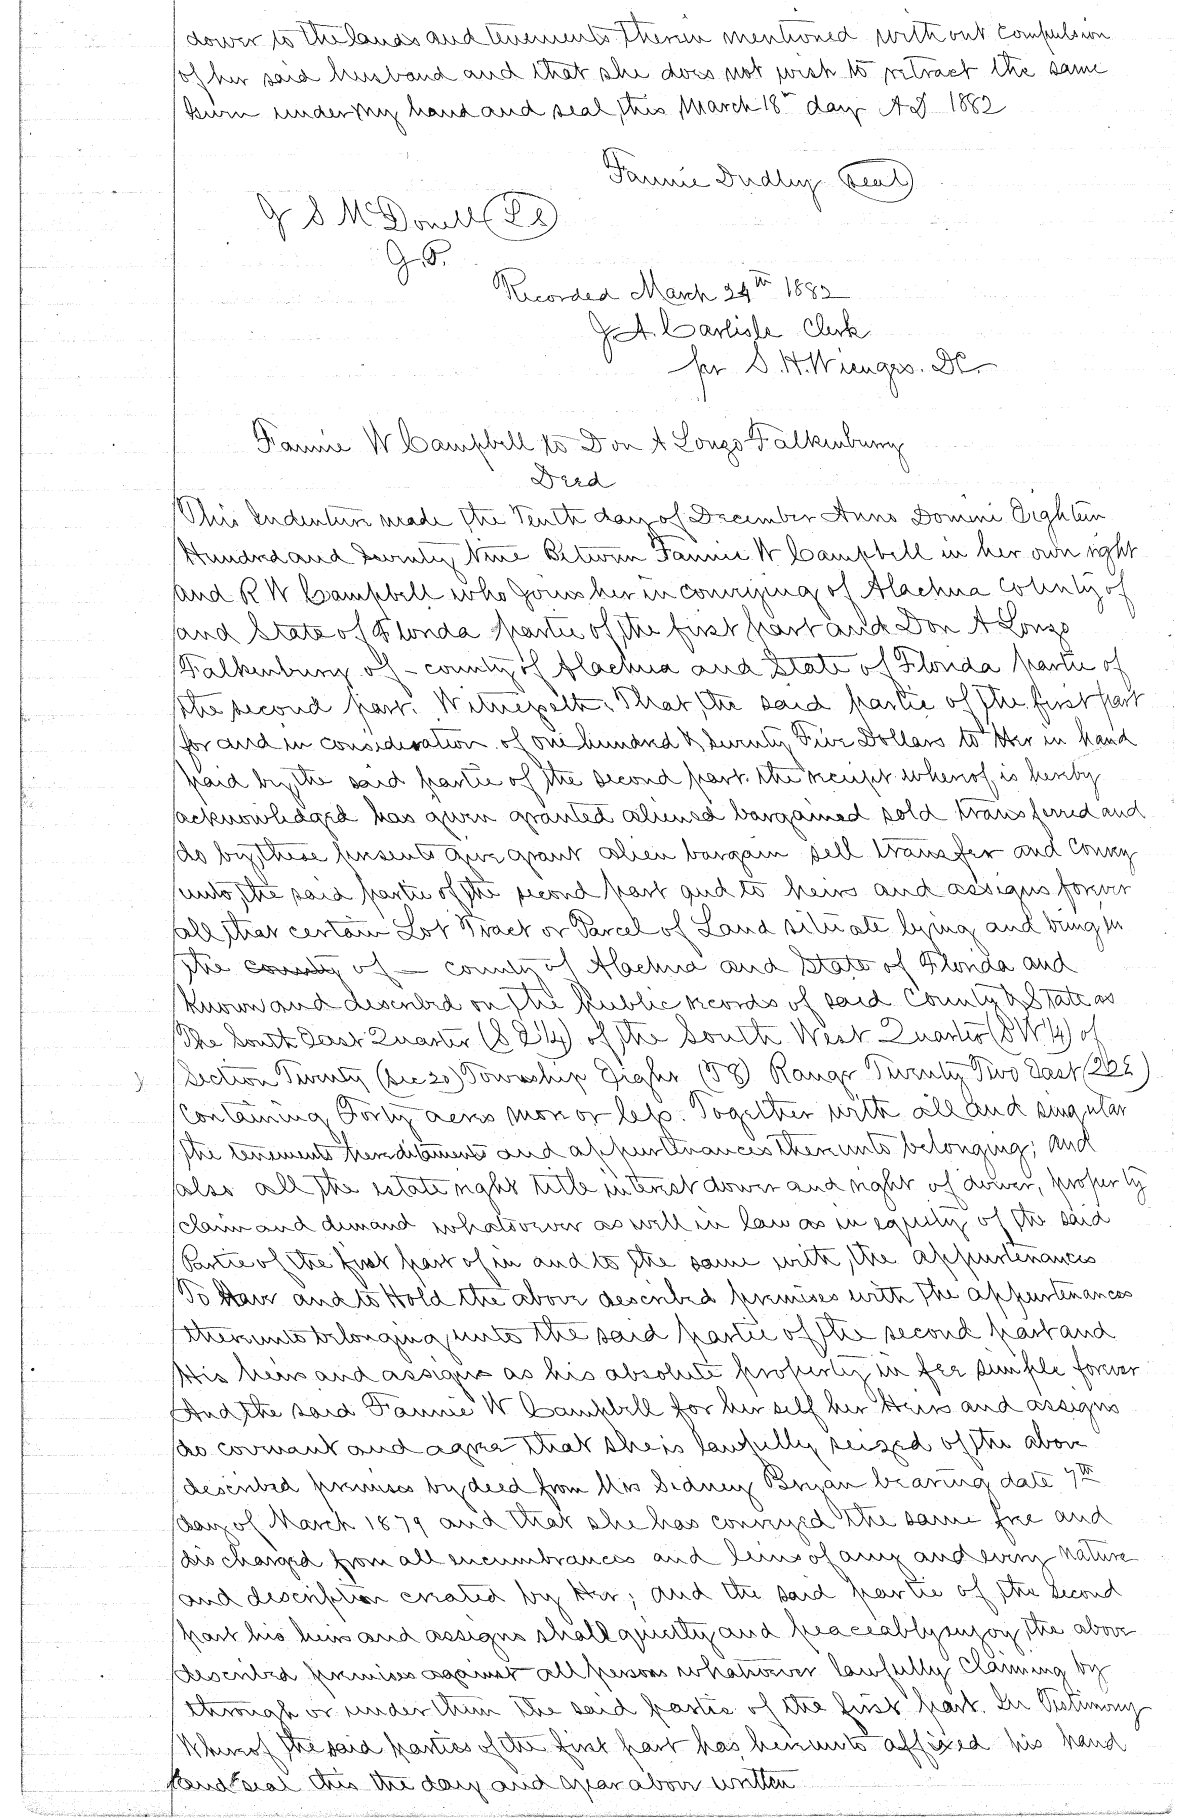 dower to the lands and tenements therein mentioned without compulsion
of her said husband and that she does not wish to retract the same
Given under My hand and seal this March 18th day A D 1882
Fannie Dudley Seal
J S McDonell L S
J.P.
Recorded March 24th 1882
J. A. Carlisle Clerk
per S. H. Wienges. DC.
Fannie W Campbell to Don A Longo Falkenburg
Deed
This Indenture made the Tenth day of December Anno Domini Eighteen
Hundred and Seventy Nine Between Fannie W Campbell in her own right
and R W Campbell who Joins her in conveying of Alachua County of
and State of Florida partie of the first part and Don A Longo
Falkenburg of - county of Alachua and State of Florida partie of
the second part. Witnesseth. That the said partie of the first part
for and in consideration of one hundred & Seventy Five Dollars to Her in hand
paid by the said partie of the second part the receipt whereof is hereby
acknowledged has given granted aliened bargained sold transferred and
do by these presents give grant alien bargain sell transfer and Convey
unto the said partie of the second part and to heirs and assigns forever
all that certain Lot Tract or Parcel of Land situate lying and being in
the county of — county of Alachua and State of Florida and
Known and described on the Public records of said County & State as
The South East Quarter (S E 1/4) of the South West Quarter (S W 1/4) of
Section Twenty (sec 20) Township Eight (T8) Range Twenty Two East (22E)
Containing Forty acres more or less. Together with all and singular
the tenements hereditaments and appurtenances thereunto belonging; and
also all the estate right title interest dower and right of dower, property
claim and demand whatsoever as well in law as in equity of the said
Partie of the first part of in and to the same with the appurtenances
To Have and to Hold the above described premises with the appurtenances
thereunto belonging unto the said partie of the second part and
His heirs and assigns as his absolute property in fee simple forever
And the said Fannie W Campbell for her self her Heirs and assigns
do covenant and agree that she is lawfully seized of the above
described premises by deed from Mrs Sidney Bryan bearing date 7th
day of March 1879 and that she has conveyed the same free and
discharged from all encumbrances and leins of any and every nature
and description created by Her; and the said partie of the second
part his heirs and assigns shall quietly and peaceably enjoy the above
described premises against all persons whatsoever lawfully Claiming by
through or under them the said partie of the first part. In Testimony
Whereof the said parties of the first part has hereunto affixed his hand
and seal this the day and year above written